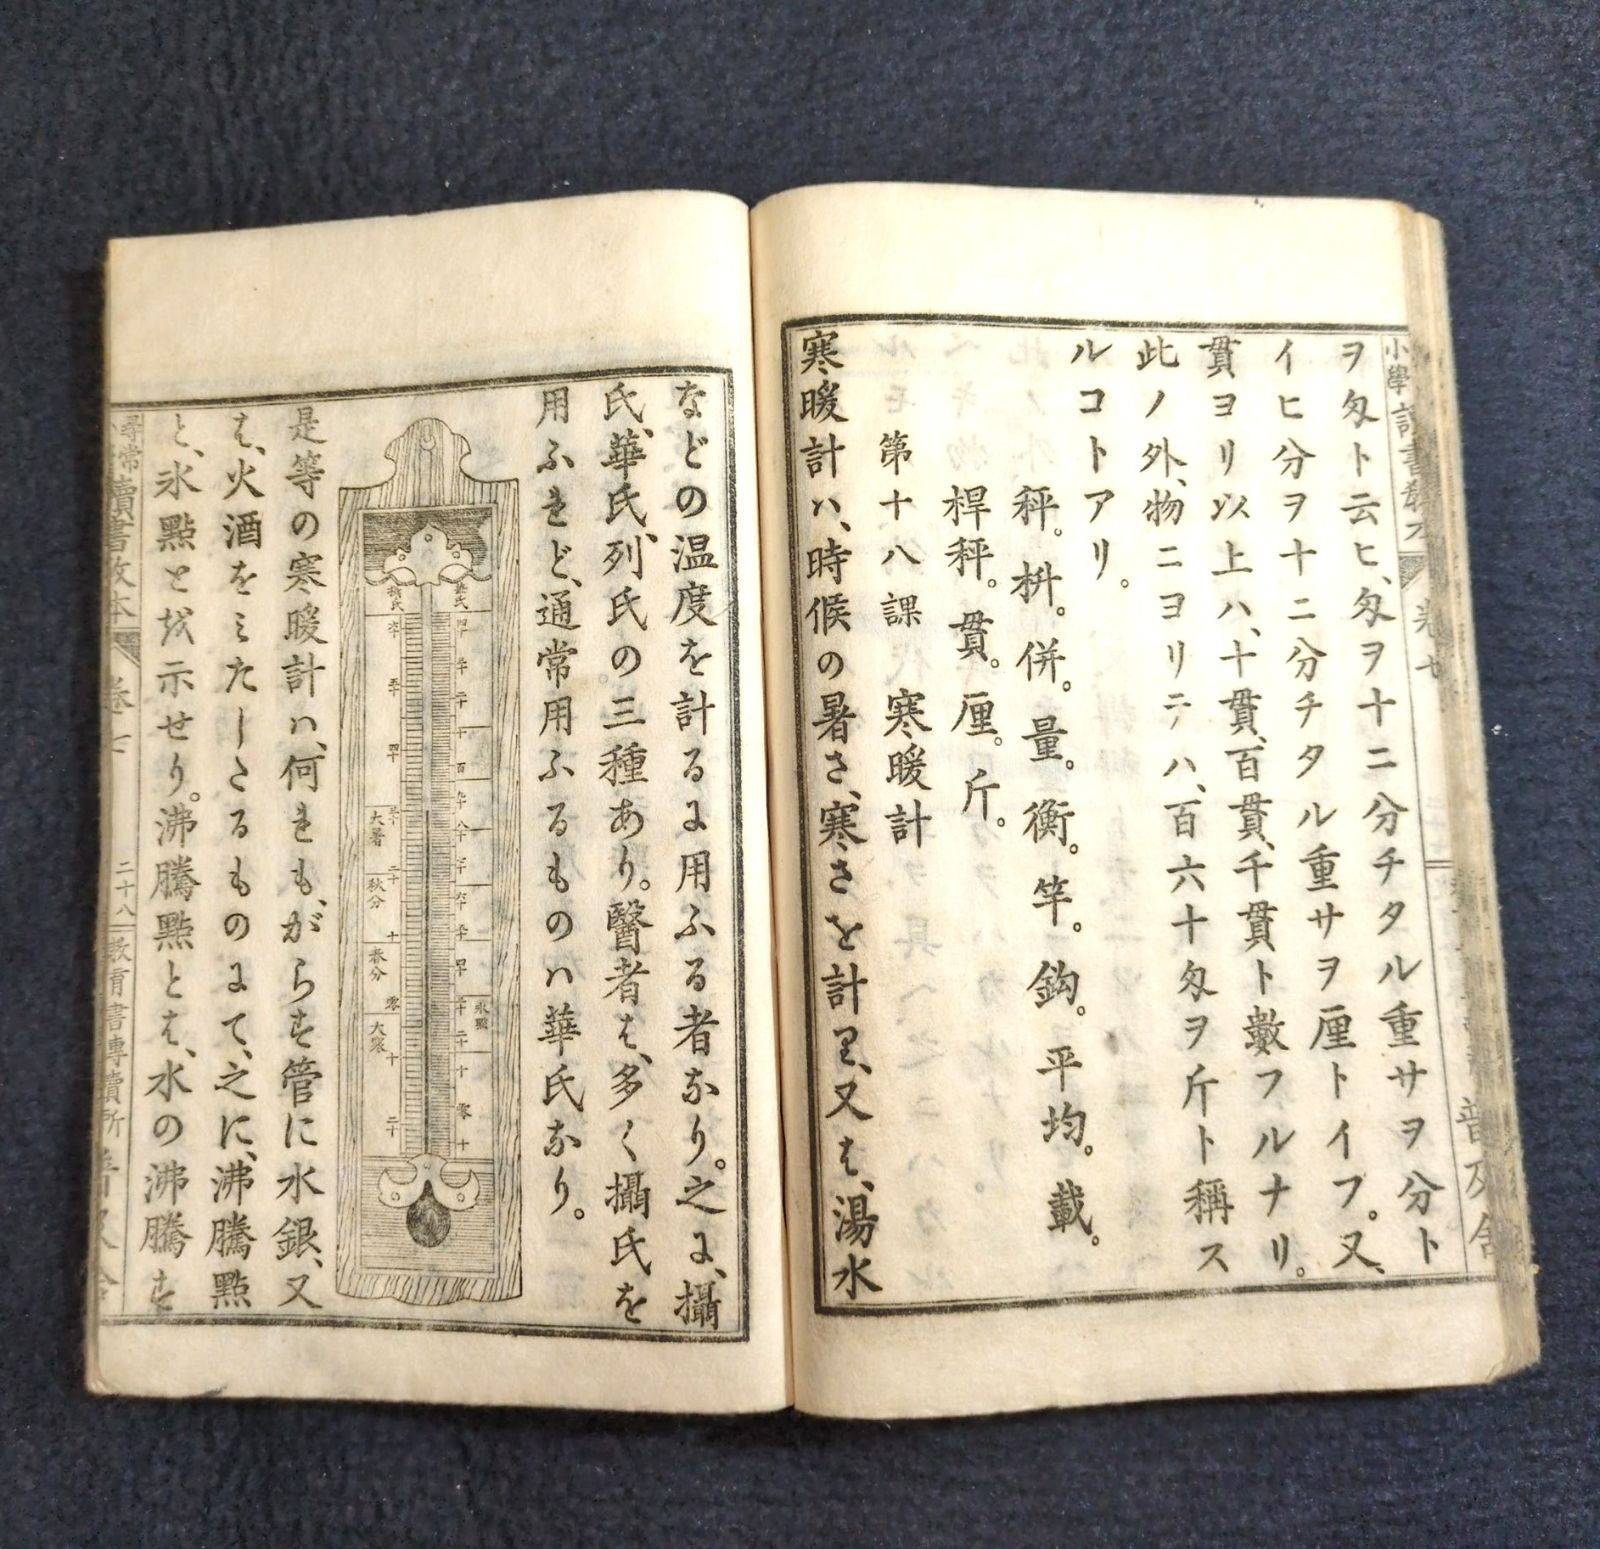 小學讀書教本
卷七
普及舍
ヲ匁ト云ヒ、匁ヲ十二分チタル重サヲ分ト
イヒ分ヲ十ニ分チタル重サヲ厘トイフ。又、
貫ヨリ以上ハ、十貫、百貫、千貫ト數フルナリ。
此ノ外、物ニヨリテハ、百六十匁ヲ斤ト稱ス
ルコトアリ。
秤。枡。併。量。衡。竿。鈎。平均。載。
桿秤。貫。厘。斤。
第十八課 寒暖計
寒暖計ハ、時候の暑さ、寒さを計里、又は、湯水
などの温度を計るに用ふる者なり。之に、攝
氏、華氏、列氏の三種あり。醫者は、多く攝氏を
用ふれど、通常用ふるものハ華氏なり。
華氏
攝氏
百
氷點
大暑
秋分
春分
零
大寒
是等の寒暖計ハ、何れも、がらす管に水銀、又
は、火酒をみたしたるものにて、之に、沸騰點
と、氷點とを示せり。沸騰點とは、水の沸騰す
尋常
讀書教本
卷七
二十八
教育書專賣所
普及舍